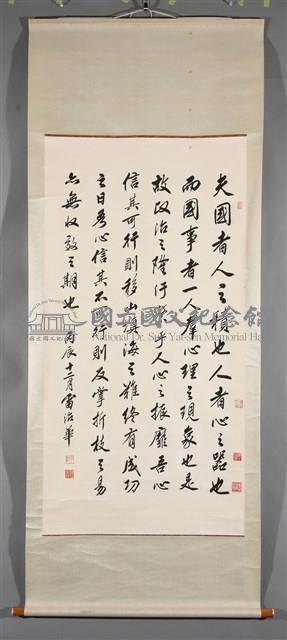 夫國者人之積也人者心之器也
而國事者一人羣心理之現象也是
故政治之隆汙係乎人心之振靡吾心
信其可行則移山填海之難終有成功
之日吾心信其不可行則反掌折枝之易
亦無收效之期也 丙辰十二月雷治華
國立國父紀念館
National Dr. Sun Yat-sen Memorial Ha